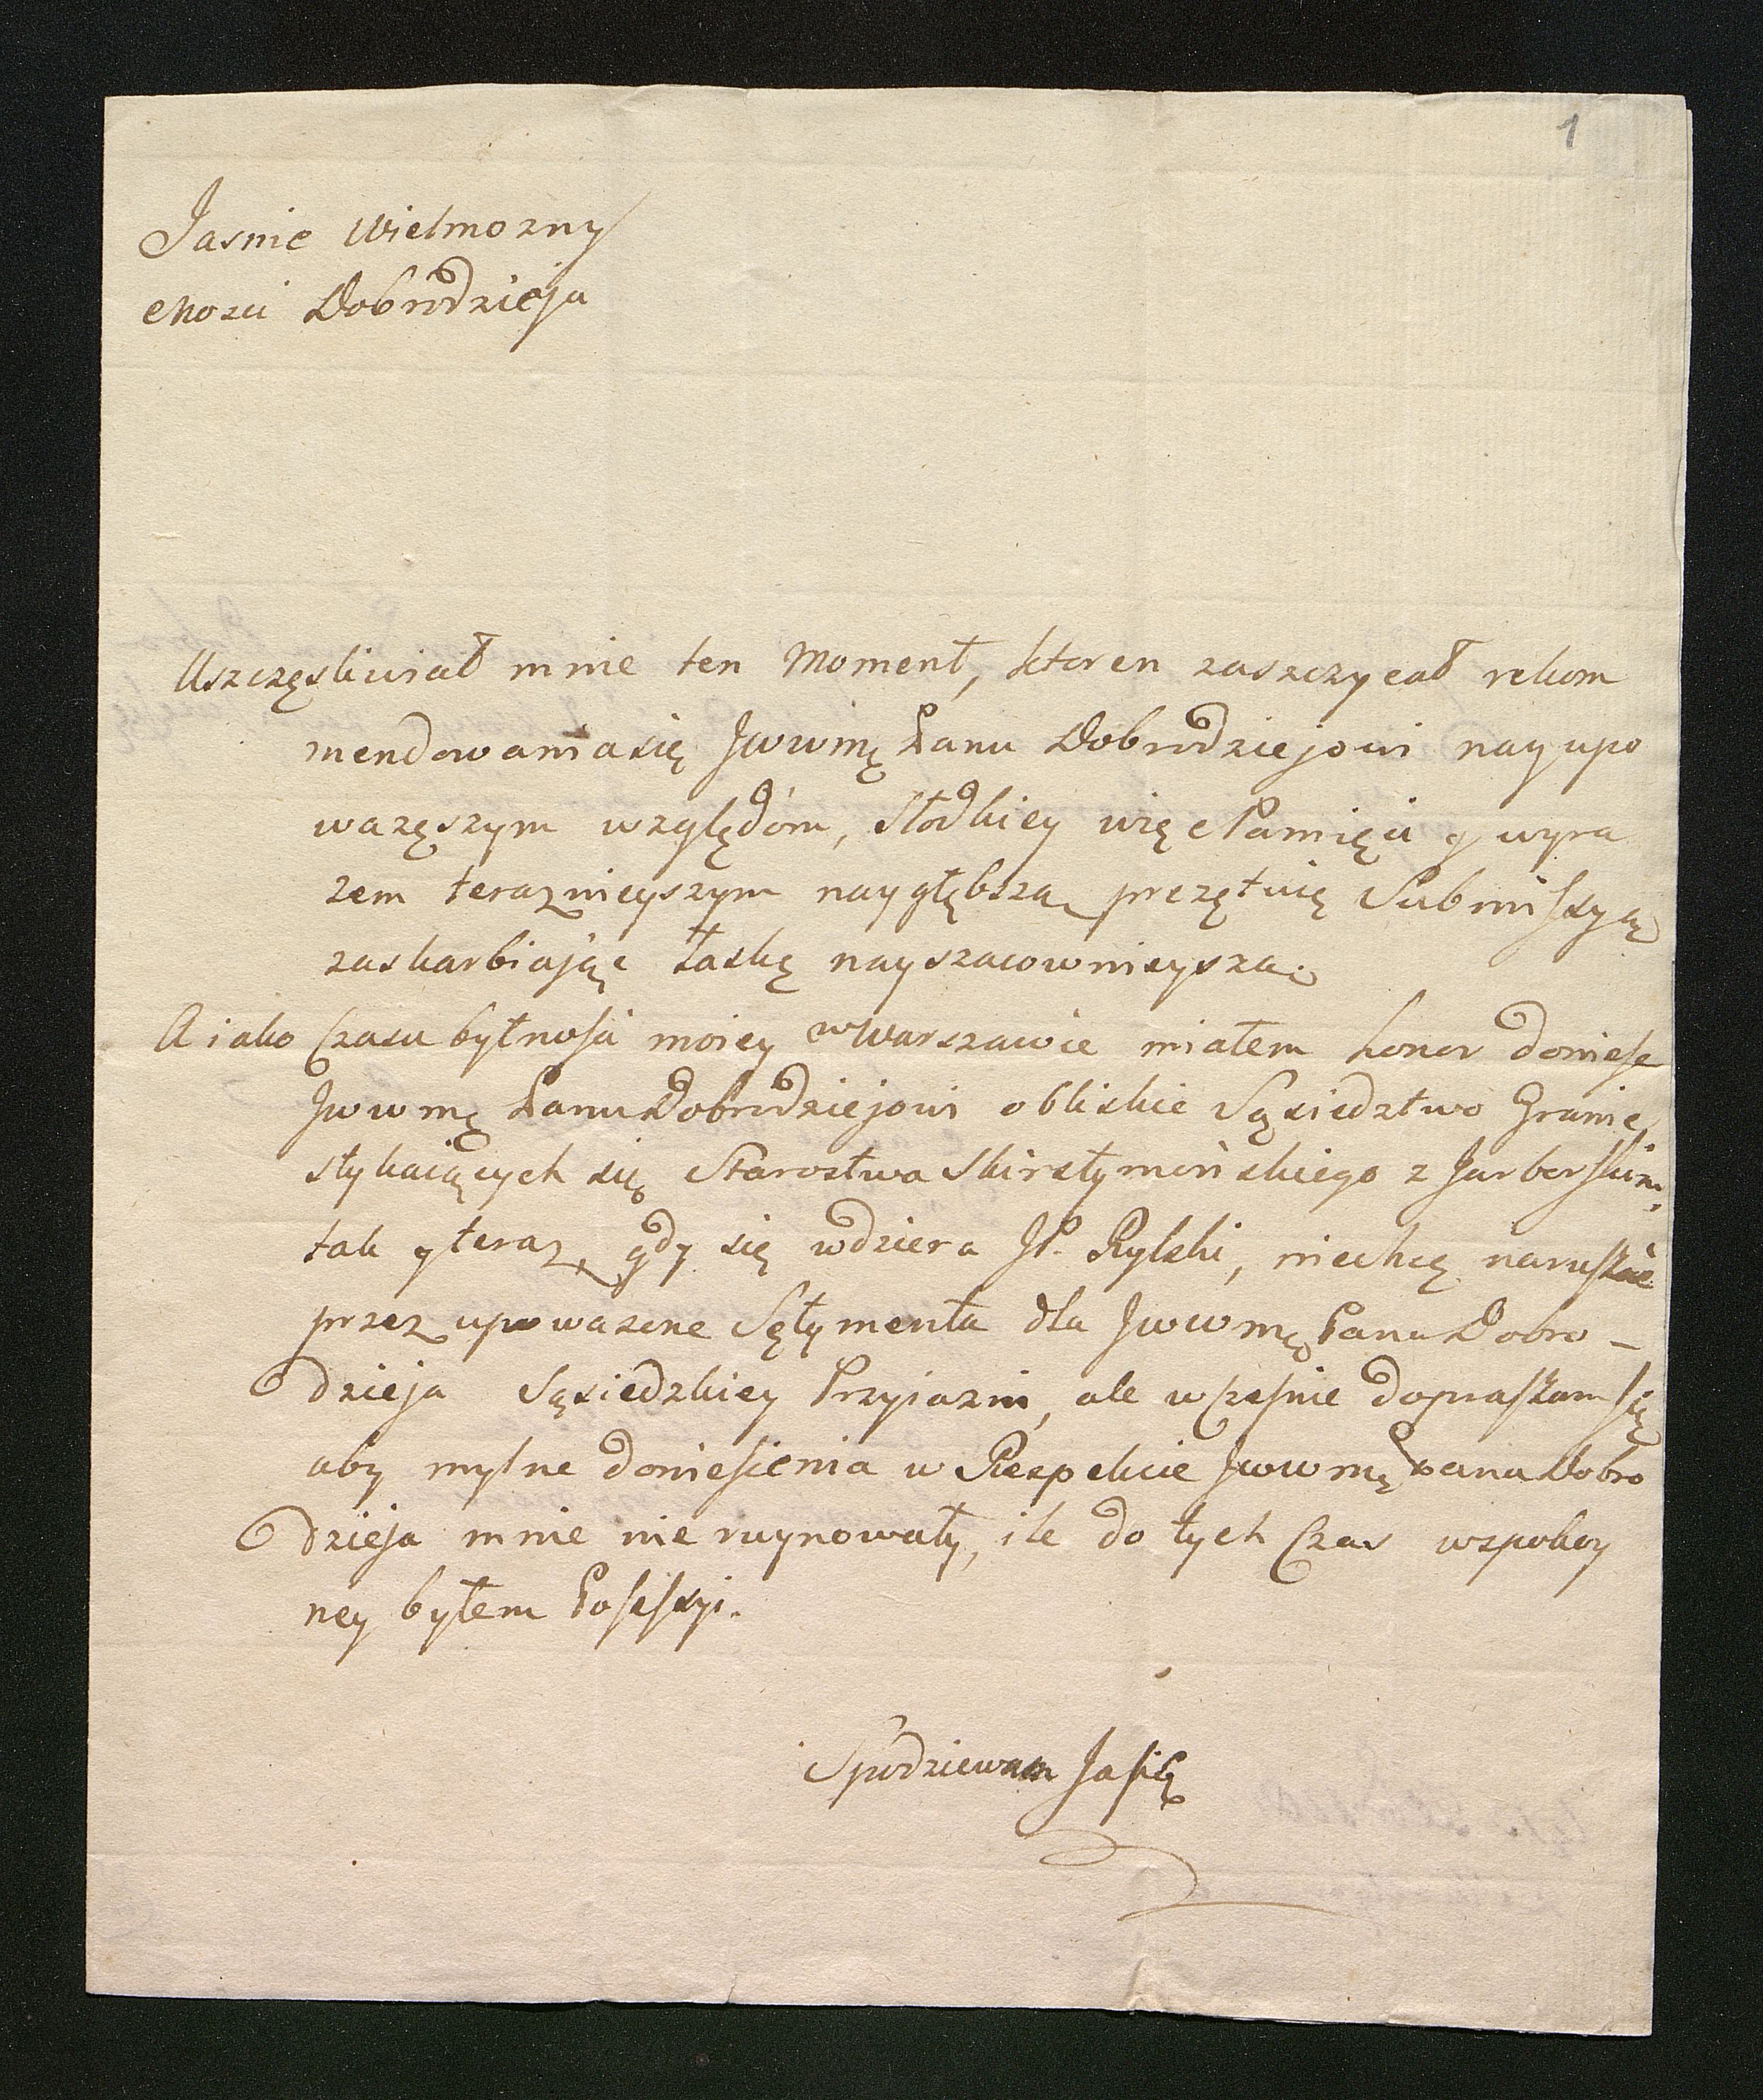 1
Jasnie Wielmozny
Mosci Dobrodzieja
Uszczęsliwiał mnie ten Moment, ktoren zaszczycał rekom
mendowania się Jwwmę Panu Dobrodziejowi nay upo
wazęszym względóm, Słodkiey więc Pamięci y wyra
zem teraznieyszym naygłębszą prezętuię Submissyą
zaskarbiając Łaskę nayszacownieyszą.
A iako Czasu bytnosci moiey w Warszawie miałem honor doniesc
Jwwmę Panu Dobrodziejowi o bliskie Sąsiedztwo Granic
stykaiących się Starostwa Skirstymońskiego z Jurborskim,
tak y teraz, gdy się wdziera JP. Rylski, niechcę naruszać
przez upowazone Sętymenta dla Jwwmę Pana Dobro –
dzieja Sąsiedzkiey Przyiazni, ale wczesnie dopraszam się
aby mylne doniesienia w Respekcie Jwwmę Pana Dobro
dzieja mnie nie ruynowały, ile do tych Czas wspokoy
ney byłem Possessyi.
Spodziewam Ja się